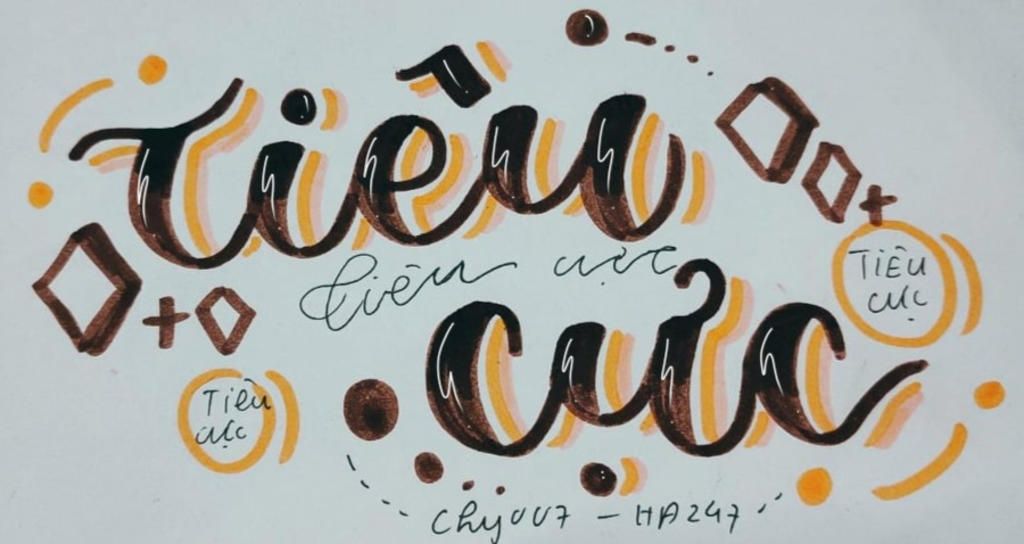 Tiêu
tiêu cực
cực
TIÊU
cực
Tiêu
cực
Chy007 – HA247